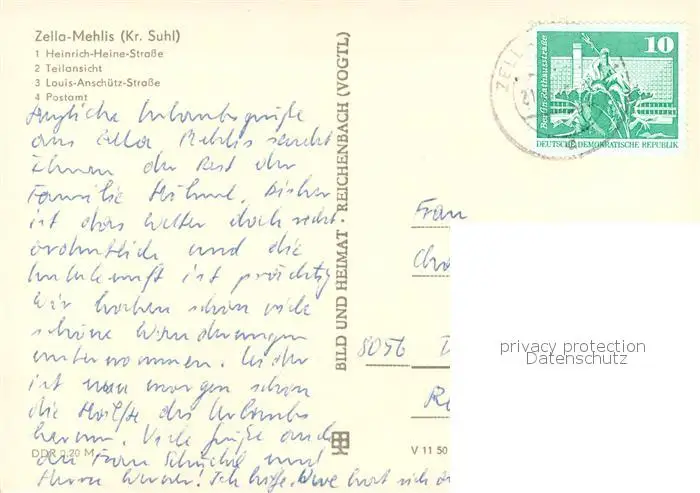 Zella-Mehlis (Kr. Suhl)
1 Heinrich-Heine-Straße
2 Teilansicht
3 Louis-Anschütz-Straße
4 Postamt
Herzliche Urlaubsgrüße
aus Zella Mehlis sendet
Ihnen der Rest der
Familie Bisher
ist das Wetter doch recht
ordentlich und die
Unterkunft ist prächtig
Wir haben schon viele
schöne Wanderungen
unternommen. Leider
ist nun morgen schon
die Hälfte des Urlaubs
herum. Viele Grüße auch
an Frau und
Ihren Ich hoffe, Uwe hat sich
DDR 0.20 M
BILD UND HEIMAT · REICHENBACH (VOGTL)
V 11 50
10
Berlin, Rathausstraße
DEUTSCHE DEMOKRATISCHE REPUBLIK
ZELL
21
Frau
8056
privacy protection
Datenschutz